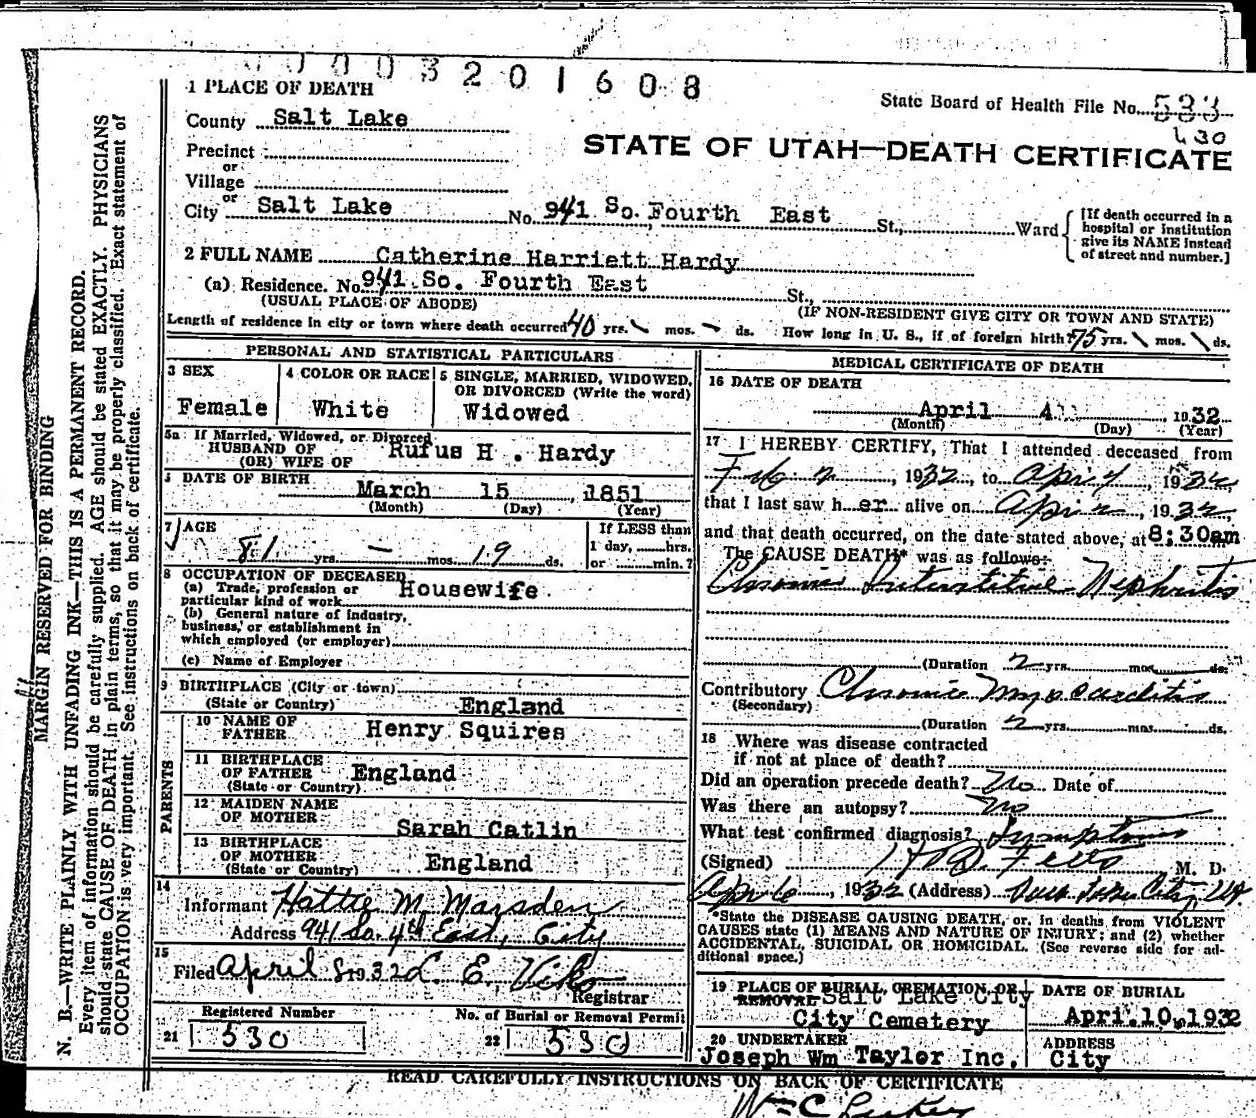 0003201608
1 PLACE OF DEATH
State Board of Health File No. 533
630
County Salt Lake
STATE OF UTAH—DEATH CERTIFICATE
Precinct
or
Village
or
City Salt Lake No. 941 So. Fourth East St., Ward
[If death occurred in a
hospital or institution
give its NAME instead
of street and number.]
2 FULL NAME Catherine Harriett Hardy
(a) Residence. No. 941 So. Fourth East St.,
(USUAL PLACE OF ABODE)
(IF NON-RESIDENT GIVE CITY OR TOWN AND STATE)
Length of residence in city or town where death occurred 40 yrs. \ mos. - ds. How long in U. S., if of foreign birth? 75 yrs. \ mos. \ ds.
PERSONAL AND STATISTICAL PARTICULARS
3 SEX
Female
4 COLOR OR RACE
White
5 SINGLE, MARRIED, WIDOWED,
OR DIVORCED (Write the word)
Widowed
5a If Married, Widowed, or Divorced
HUSBAND OF
(OR) WIFE OF
Rufus H . Hardy
DATE OF BIRTH
March 15, 1851
(Month) (Day) (Year)
7 AGE
81 yrs. — mos. 19 ds.
If LESS than
1 day, hrs.
or min.?
8 OCCUPATION OF DECEASED
(a) Trade, profession or
particular kind of work Housewife
(b) General nature of industry,
business, or establishment in
which employed (or employer)
(c) Name of Employer
9 BIRTHPLACE (City or town)
(State or Country) England
PARENTS
10 NAME OF
FATHER
Henry Squires
11 BIRTHPLACE
OF FATHER
(State or Country)
England
12 MAIDEN NAME
OF MOTHER
Sarah Catlin
13 BIRTHPLACE
OF MOTHER
(State or Country)
England
14
Informant Hattie M Marsden
Address 941 So. 4th East, City
15
Filed April 8 1932 L. E. Viko
Registrar
Registered Number
21 530
No. of Burial or Removal Permit
22 530
MEDICAL CERTIFICATE OF DEATH
16 DATE OF DEATH
April 4 1932
(Month) (Day) (Year)
17 I HEREBY CERTIFY, That I attended deceased from
Feb 2, 1932, to Apr 4, 1932
that I last saw her alive on Apr 2, 1932,
and that death occurred, on the date stated above, at 8:30am
The CAUSE DEATH* was as follows:
Chronic Interstitial Nephritis
(Duration 2 yrs. mos. ds.
Contributory Chronic Myocarditis
(Secondary)
(Duration 2 yrs. mos. ds.
18 Where was disease contracted
if not at place of death?
Did an operation precede death? No Date of
Was there an autopsy? No
What test confirmed diagnosis? Symptoms
(Signed) M. D.
Apr 6, 1932 (Address) Salt Lake City, Ut
*State the DISEASE CAUSING DEATH, or, in deaths from VIOLENT
CAUSES state (1) MEANS AND NATURE OF INJURY; and (2) whether
ACCIDENTAL, SUICIDAL OR HOMICIDAL. (See reverse side for ad-
ditional space.)
19 PLACE OF BURIAL, CREMATION, OR
REMOVAL Salt Lake City
City Cemetery
DATE OF BURIAL
April 10, 1932
20 UNDERTAKER
Joseph Wm Taylor Inc.
ADDRESS
City
READ CAREFULLY INSTRUCTIONS ON BACK OF CERTIFICATE
Wm C
MARGIN RESERVED FOR BINDING
N. B.—WRITE PLAINLY WITH UNFADING INK—THIS IS A PERMANENT RECORD.
Every item of information should be carefully supplied. AGE should be stated EXACTLY. PHYSICIANS
should state CAUSE OF DEATH in plain terms, so that it may be properly classified. Exact statement of
OCCUPATION is very important. See instructions on back of certificate.